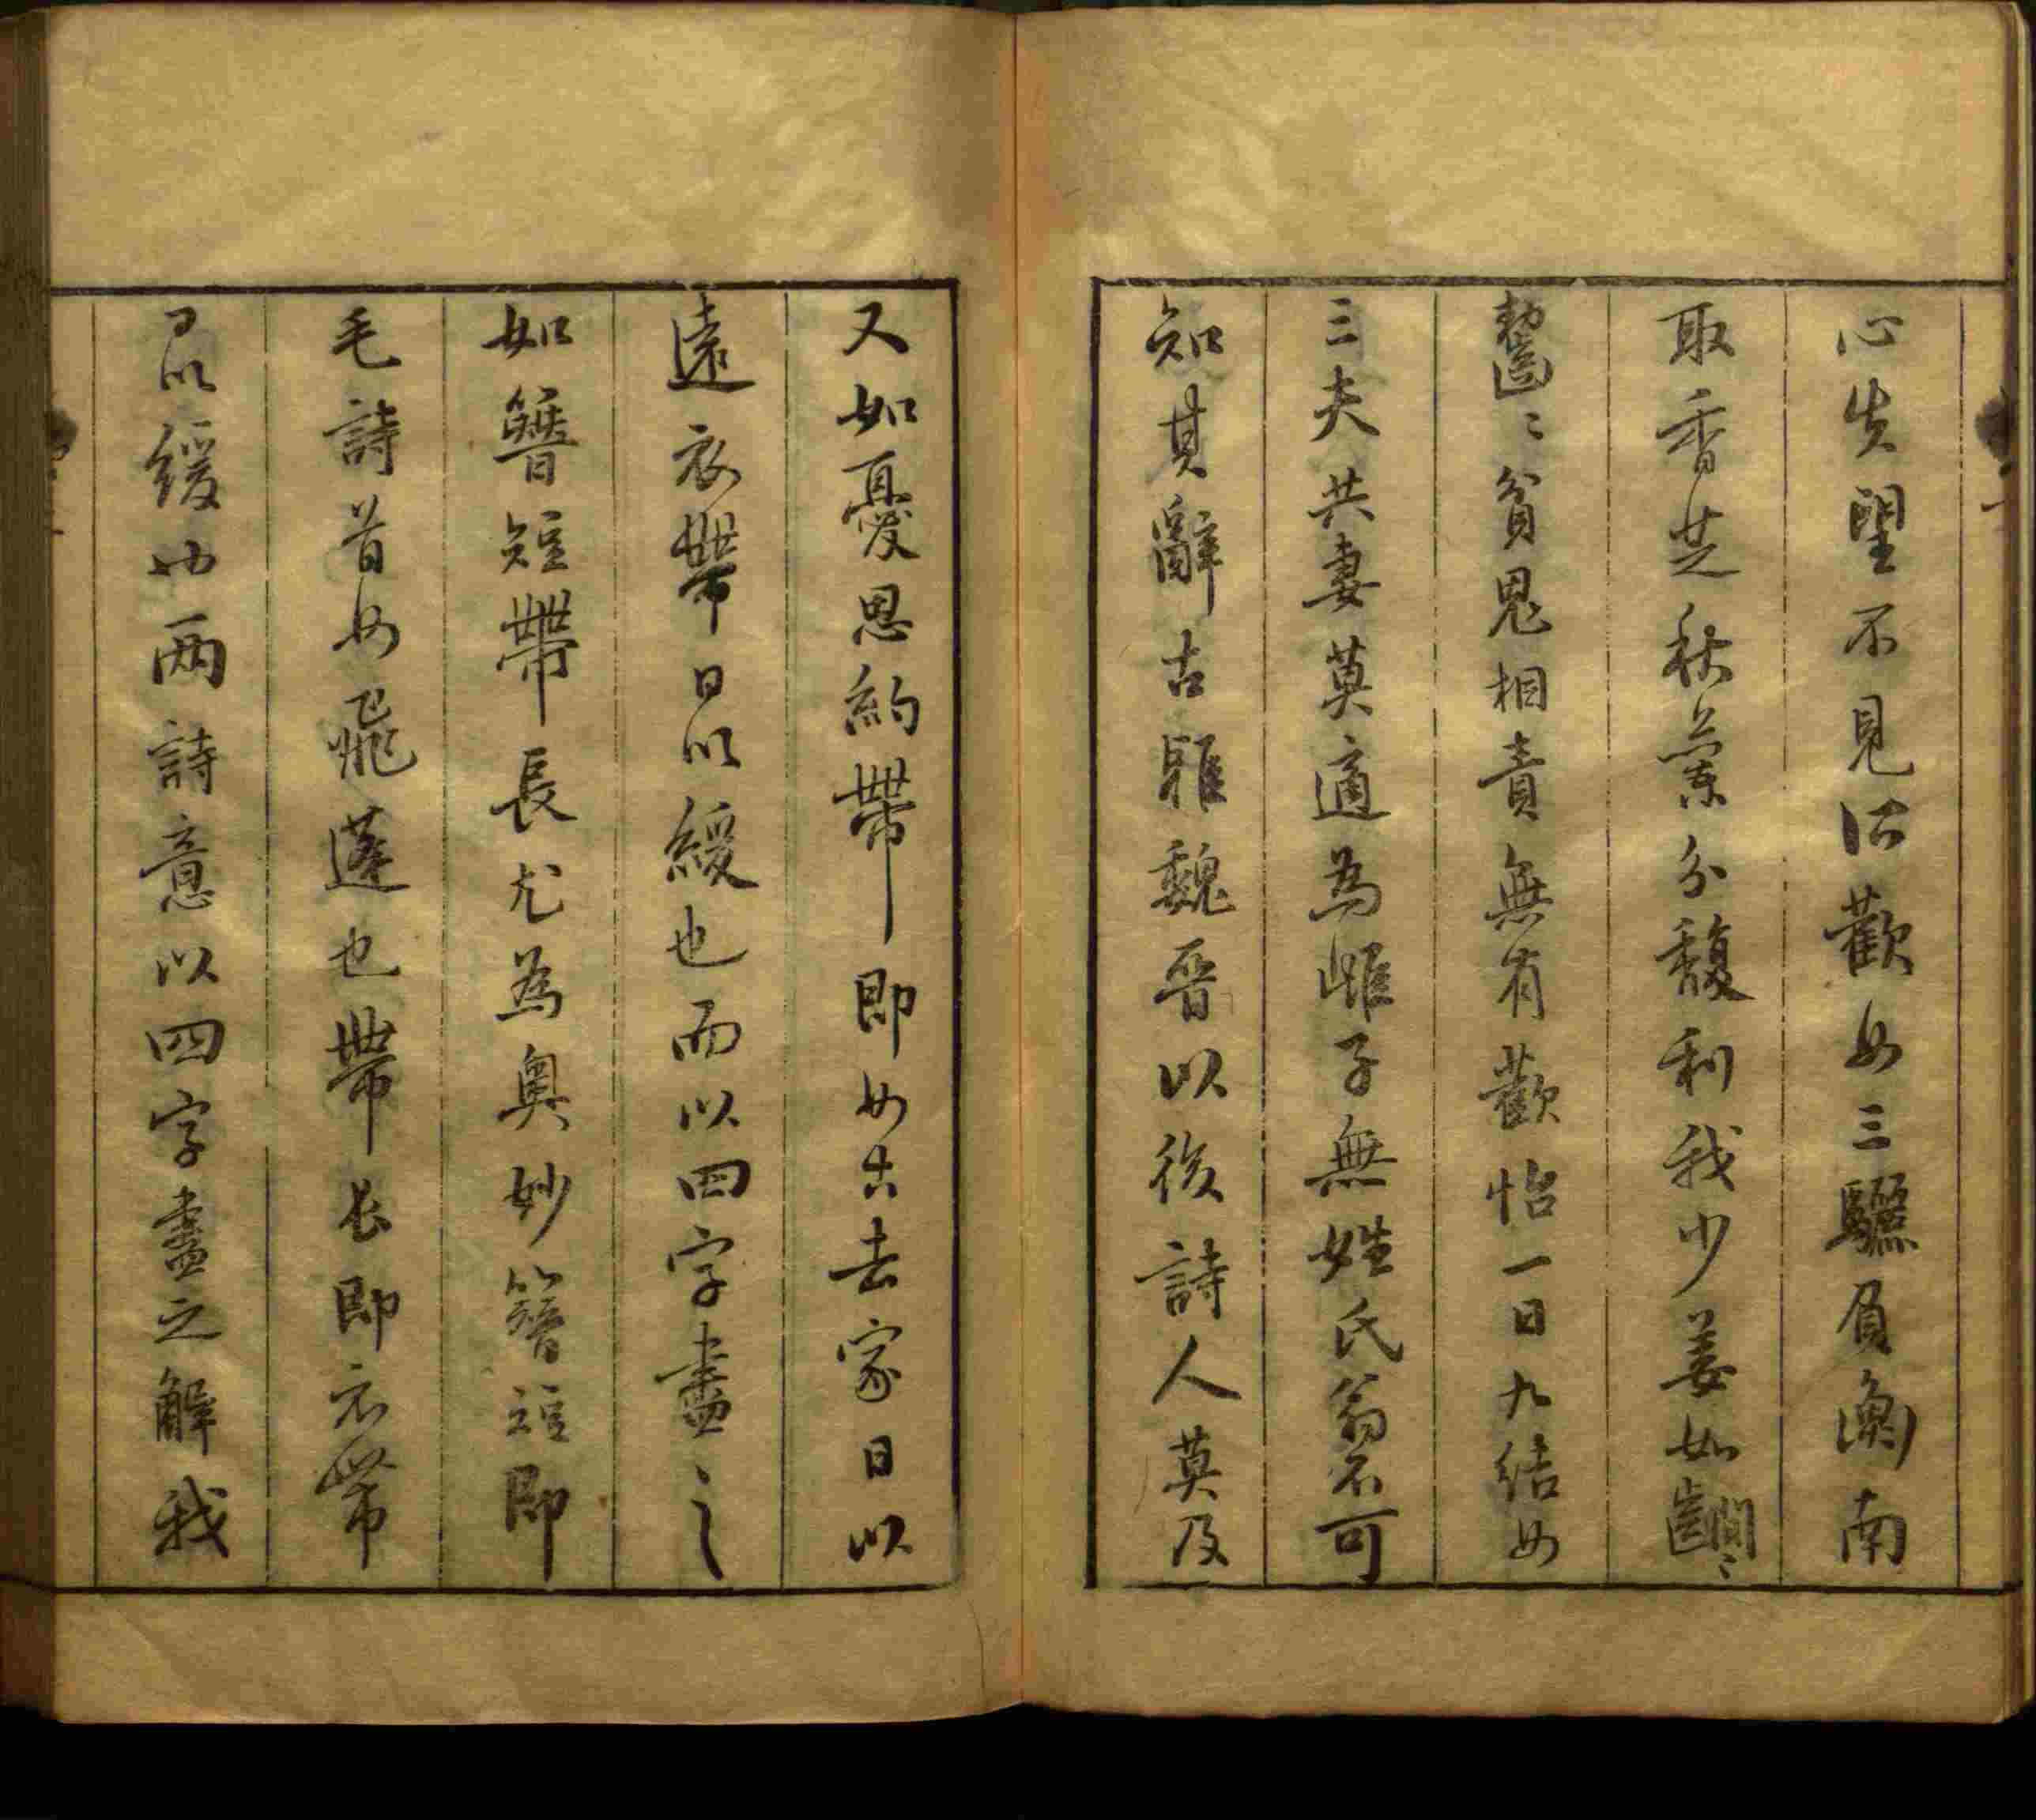 心失望不見所歡如三驪負衡南
取香芝秋蘭分馥利我少姜如齒間〻
齧〻貧鬼相責無有歡怡一日九結如
三夫共妻莫適為雌子無姓氏翁不可
知其辭古雅魏晉以後詩人莫及
又如憂思約帶即如古去家日以
遠衣帶日以緩也而以四字盡之
如簪短帶長尤為奧妙簪短即
毛詩首如飛蓬也帶長即衣帶
日以緩也兩詩意以四字盡之解我